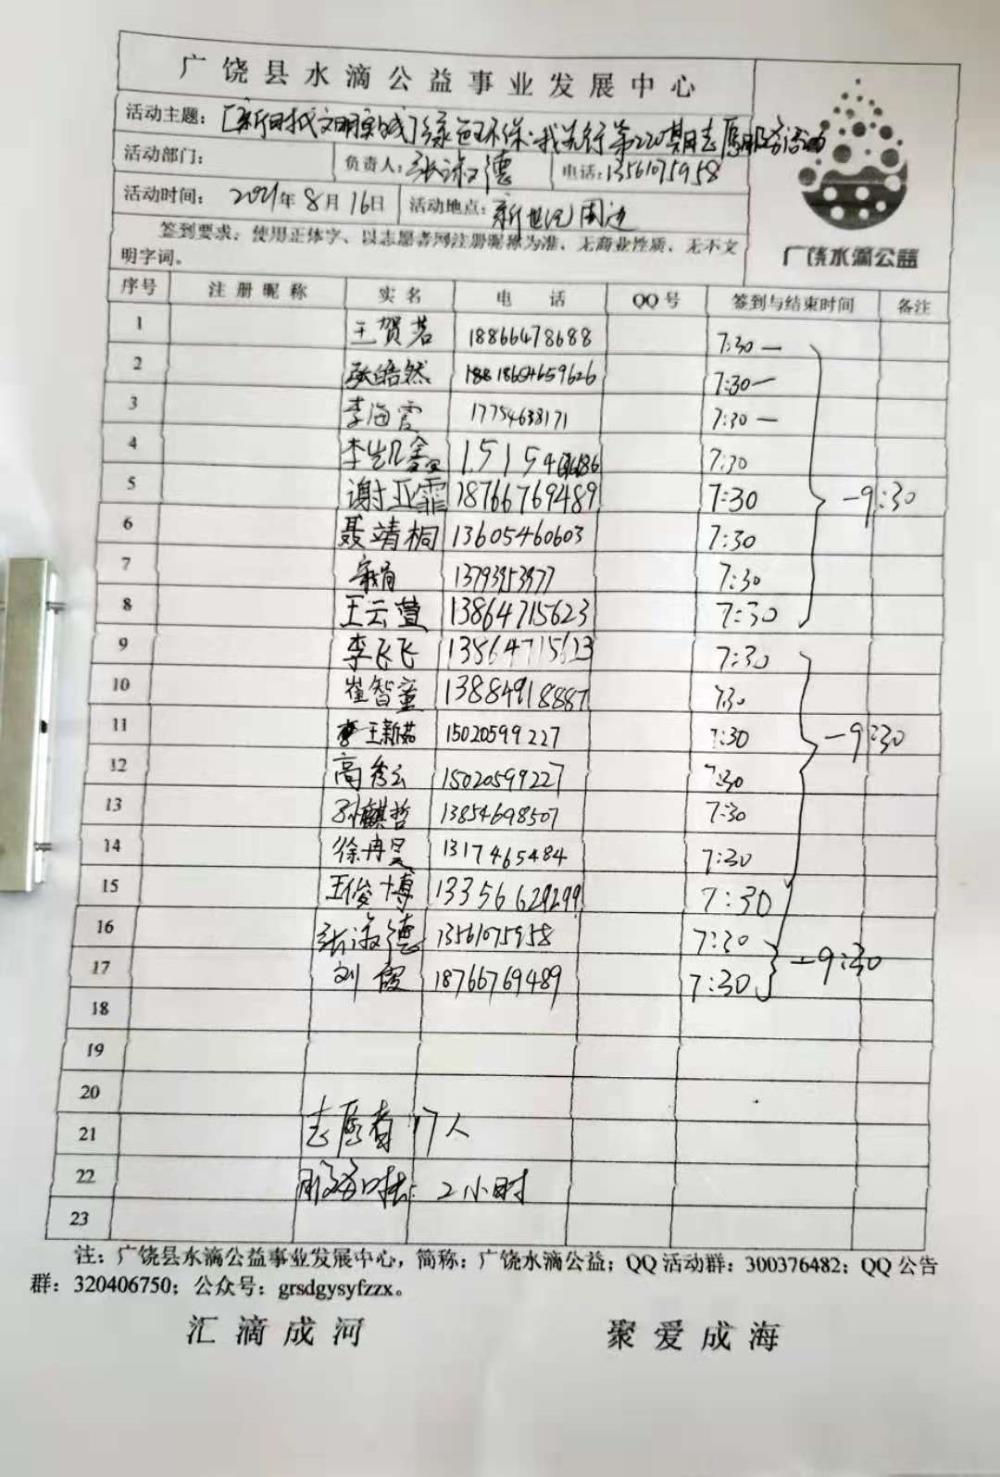 广饶县水滴公益事业发展中心
活动主题：[新时代文明实践]绿色环保·我先行第220期志愿服务活动
活动部门： 负责人：张淑德 电话：13561075958
活动时间：2021年8月16日 活动地点：新世纪周边
签到要求：使用正体字、以志愿者网注册昵称为准、无商业性质、无不文
明字词。
广饶水滴公益
序号 注册昵称 实名 电话 QQ号 签到与结束时间 备注
1 王贺茗 18866478688 7:30—
2 张皓然 7:30—
3 李海霞 17754638171 7:30—
4 7:30
5 谢亚霏 18766769489 7:30 —9:30
6 聂靖桐 13605460603 7:30
7 7:30
8 王云萱 13864715623 7:30
9 李飞飞 13564715623 7:30
10 崔智童 13884918887 7:30
11 王新茹 15020599227 7:30 —9:30
12 高秀云 15020599227 7:30
13 麒哲 13854698507 7:30
14 徐冉昊 1317465484 7:30
15 王俊博 13356629299 7:30
16 张淑德 13561075958 7:30
17 刘霞 18766769489 7:30 —9:30
18
19
20
21 志愿者17人
22 服务时长：2小时
23
注：广饶县水滴公益事业发展中心，简称：广饶水滴公益；QQ活动群：300376482；QQ公告
群：320406750；公众号：grsdgysyfzzx。
汇滴成河 聚爱成海